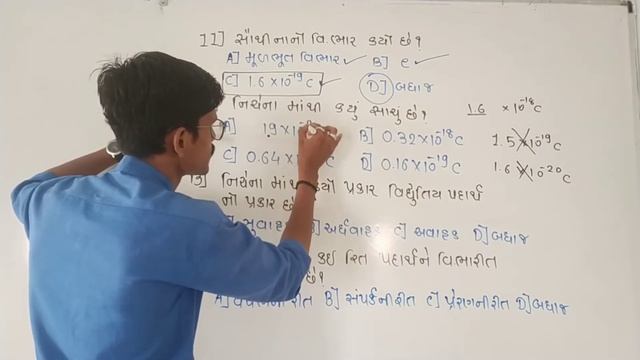 11] સૌથી નાનો વિભાર કયો છે?
A] મૂળભૂત વિભાર ✓ B] e ✓
C] 1.6 × 10⁻¹⁹ C ✓ D] બધાજ
નિચેના માંથી કયું સાચું છે? 1.6 × 10⁻¹⁸ C
A] 1.9 × 1 B] 0.32 × 10⁻¹⁸ C 1.5 × 10⁻¹⁹ C
C] 0.64 × C D] 0.16 × 10⁻¹⁹ C 1.6 × 10⁻²⁰ C
નિચેના પ્રકાર વિદ્યુતિય પદાર્થ
નો પ્રકાર છે
B] અર્ધવાહક C] અવાહક D] બધાજ
કઈ રિત પદાર્થને વિભારીત
છે?
A] રીત B] સંપર્કની રીત C] પ્રેરાણની રીત D] બધાજ